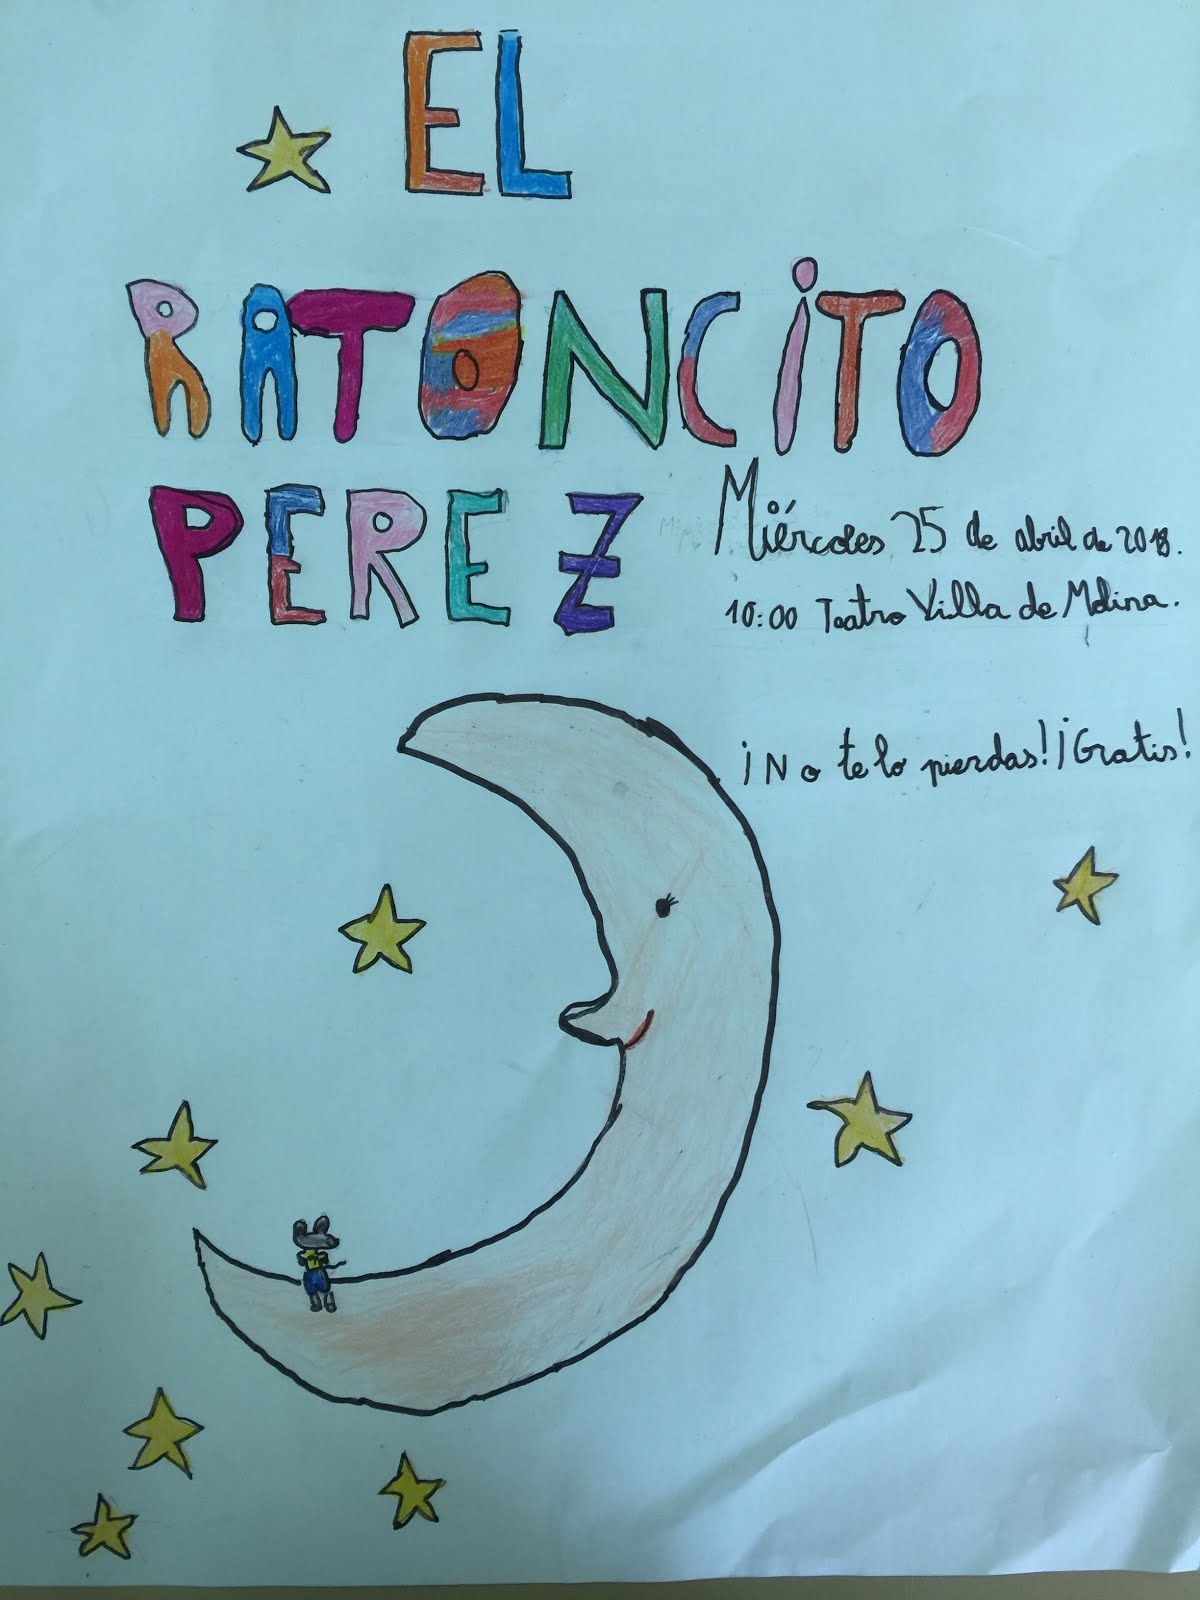 EL
RATONCITO
PEREZ
Miércoles 25 de abril de 2018.
10:00 Teatro Villa de Molina.
¡No te lo pierdas! ¡Gratis!